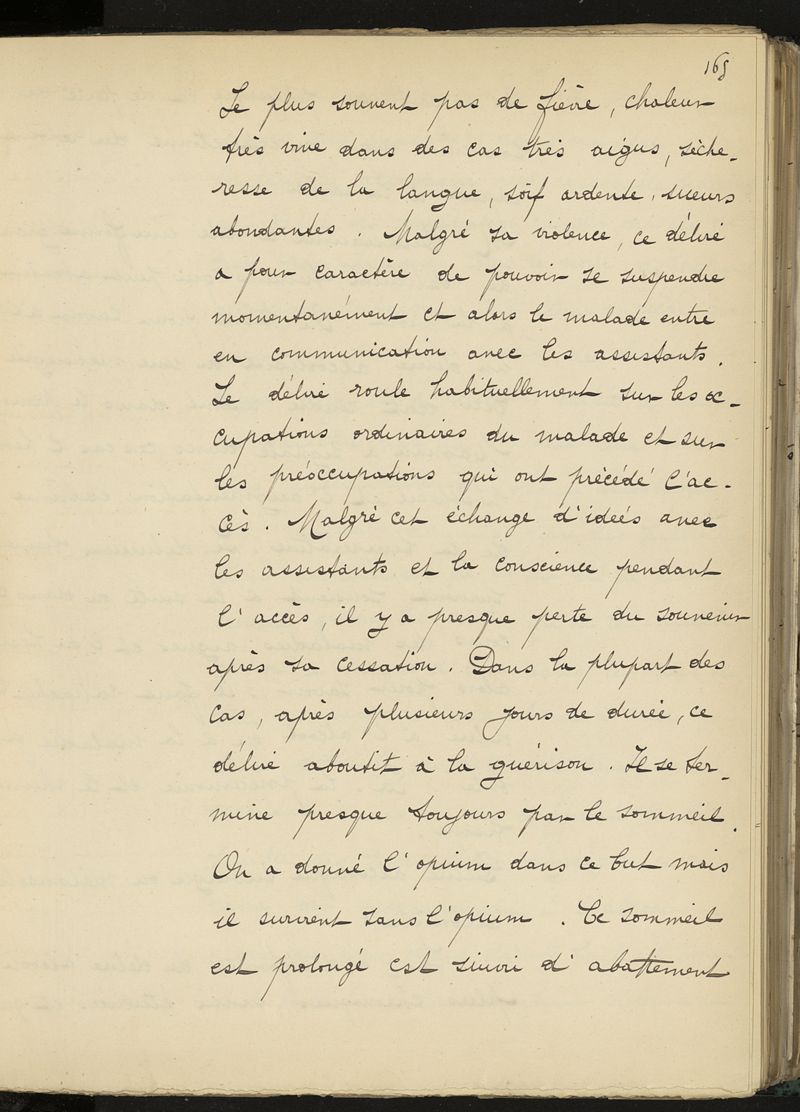 165
Le plus souvent pas de fièvre, chaleur
très vive dans des cas très aigus, sèche-
resse de la langue, soif ardente, sueurs
abondantes. Malgré sa violence, ce délire
a pour caractère de pouvoir se suspendre
momentanément et alors le malade entre
en communication avec les assistants.
Le délire roule habituellement sur les oc-
cupations ordinaires du malade et sur
les préoccupations qui ont précédé l'ac-
cès. Malgré cet échange d'idées avec
les assistants et la conscience pendant
l'accès, il y a presque perte du souvenir
après sa cessation. Dans la plupart des
cas, après plusieurs jours de durée, ce
délire aboutit à la guérison. Il se ter-
mine presque toujours par le sommeil.
On a donné l'opium dans ce but mais
il survient sans l'opium. Ce sommeil
est prolongé est suivi d'abattement